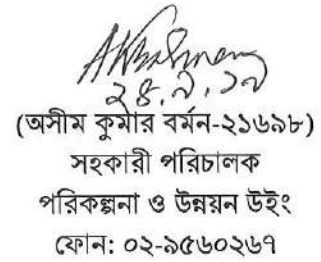 ২৪.৯.১৭
(অসীম কুমার বর্মন-২১৬৯৮)
সহকারী পরিচালক
পরিকল্পনা ও উন্নয়ন উইং
ফোন: ০২-৯৫৬০২৬৭